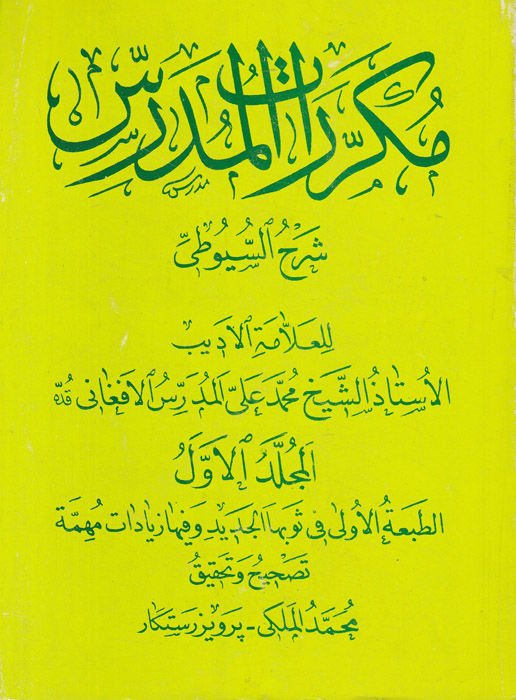 مُكَرَّرات المُدَرِّس
مدرس
شَرحُ السُّيُوطيّ
لِلعَلّامَةِ الأدَيبِ
الأُستاذُ الشَّيخ مُحَمَّد عَليّ المُدَرِّسُ الافغاني قُدّه
المُجَلَّدُ الأوَّلُ
الطَبعَةُ الأُولىٰ في ثَوبِهَا الجَديدِ وَفيها زيادات مُهِمَّة
تَصحيحُ وَتَحقيقُ
مُحَمَّدُ المَلَكي - پَرويز رَستكار